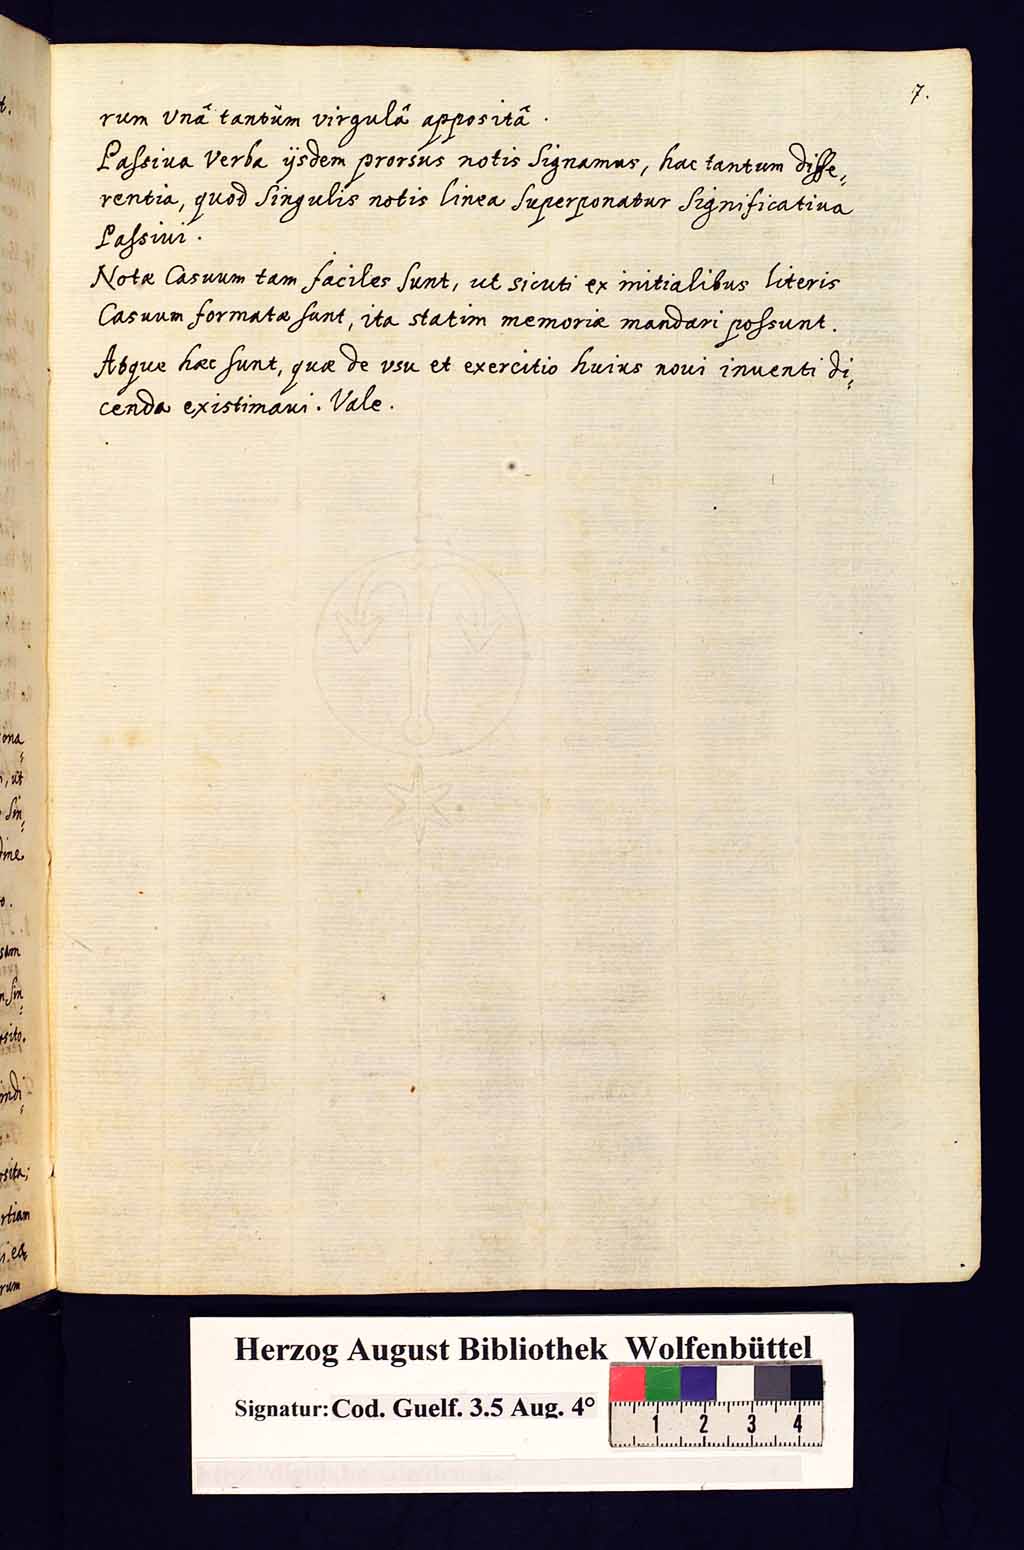 7.
rum Vnâ tantùm virgulâ appositâ.
Passiua Verba ijsdem prorsus notis Signamus, hac tantum diffe,
rentia, quod Singulis notis linea Superponatur Significatiua
Passiui.
Notæ Casuum tam faciles sunt, ut sicuti ex initialibus literis
Casuum formatæ sunt, ita statim memoriæ mandari possunt.
Atque hæc sunt, quæ de vsu et exercitio huius noui inuenti di,
cenda existimaui. Vale.
ona
, ut
Sin,
dine
o.
sam
n Sin
sito.
indi
sita;
rtiam
i. ea
rum
Herzog August Bibliothek Wolfenbüttel
Signatur: Cod. Guelf. 3.5 Aug. 4°
1 2 3 4